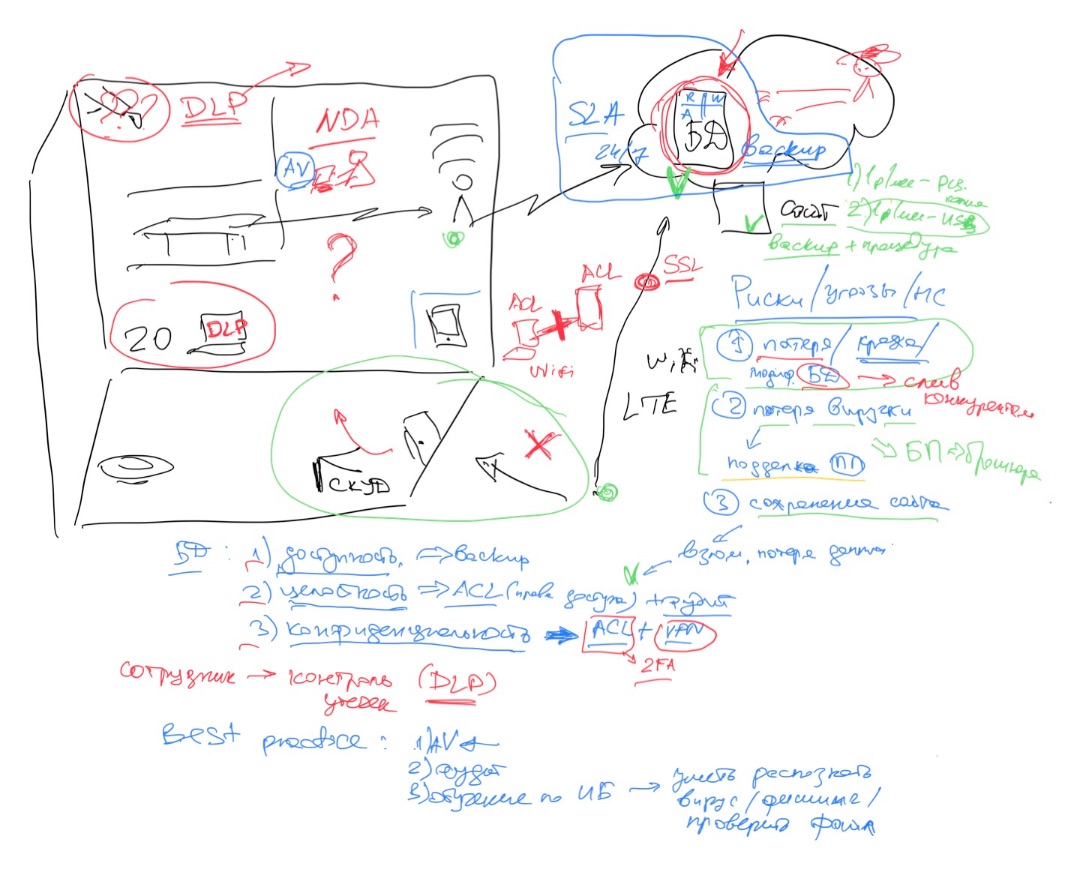 ???
DLP
NDA
AV
?
20
DLP
СКУД
SLA
24/7
R W
A
БД
Backup
Сайт
backup + процедура
ACL
ACL
WiFi
SSL
LTE
Риски/угрозы/
1 потеря/кража/
БД → слив
конкурентам
2 потеря выручки
подделка ПП
БП ⇒ брошюра
3 сохранение сайта
взлом, потеря данных
БД : 1) доступность, ⇒ Backup
2) целостность ⇒ ACL (права доступа) + аудит
3) конфиденциальность → ACL + VPN
2FA
сотрудник → контроль (DLP)
утечек
Best practice : 1) AV
2) аудит
3) обучение по ИБ → уметь распознать
вирус/фишинг/
проверить файл